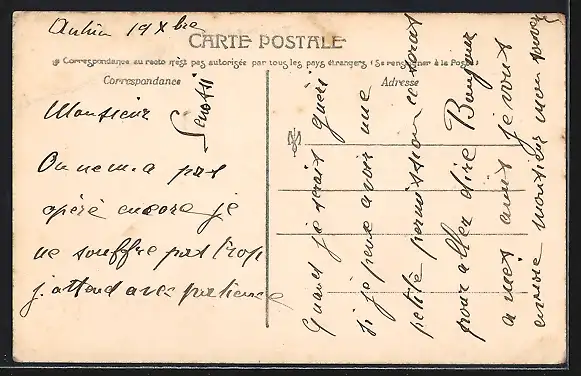 19 Xbre
CARTE POSTALE
Correspondance au recto n'est pas autorisée par tous les pays étrangers (Se renseigner à la Poste)
Correspondance
Adresse
Monsieur
On ne m'a pas
opéré encore je
ne souffre pas trop
j'attend avec patience
Quand je serais guéri
si je peux avoir une
petite permission ce serat
pour aller dire Bonjour
a mes amis je vous
envoie monsieur mon